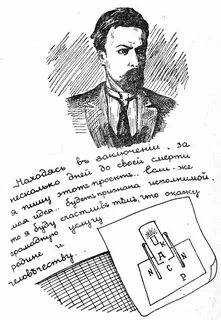 Находясь въ заключении. за
несколько дней до своей смерти
я пишу этотъ проектъ.. Если-же
моя идея.. будетъ признана исполнимой.
то я буду счастливъ тѣмъ, что окажу
громадную услугу
родине и
человѣчеству...
K
A
N C N
P